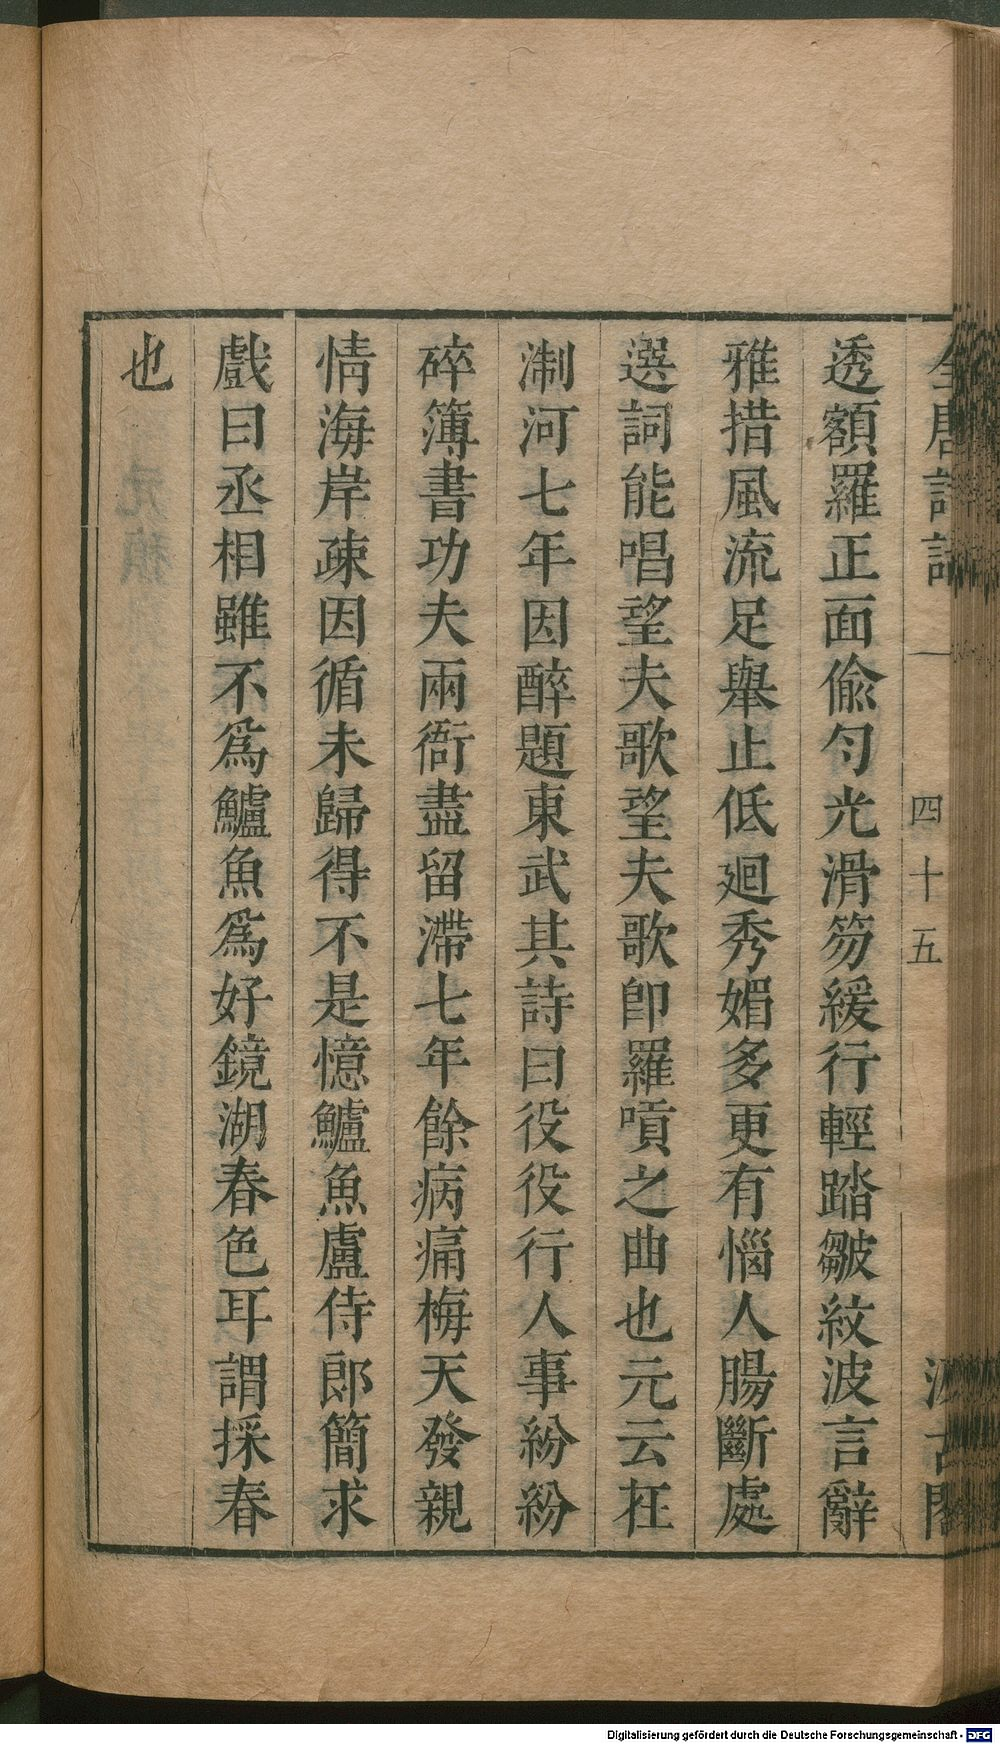 全唐詩話 一 四十五 汲古閣
透額羅正面偸勻光滑笏緩行輕踏皺紋波言辭
雅措風流足舉止低廻秀媚多更有惱人腸斷處
選詞能唱望夫歌望夫歌卽羅嗊之曲也元云在
淛河七年因醉題東武其詩曰役役行人事紛紛
碎簿書功夫兩衙盡留滯七年餘病痛梅天發親
情海岸疎因循未歸得不是憶鱸魚盧侍郎簡求
戲曰丞相雖不爲鱸魚爲好鏡湖春色耳謂採春
也
Digitalisierung gefördert durch die Deutsche Forschungsgemeinschaft - DFG